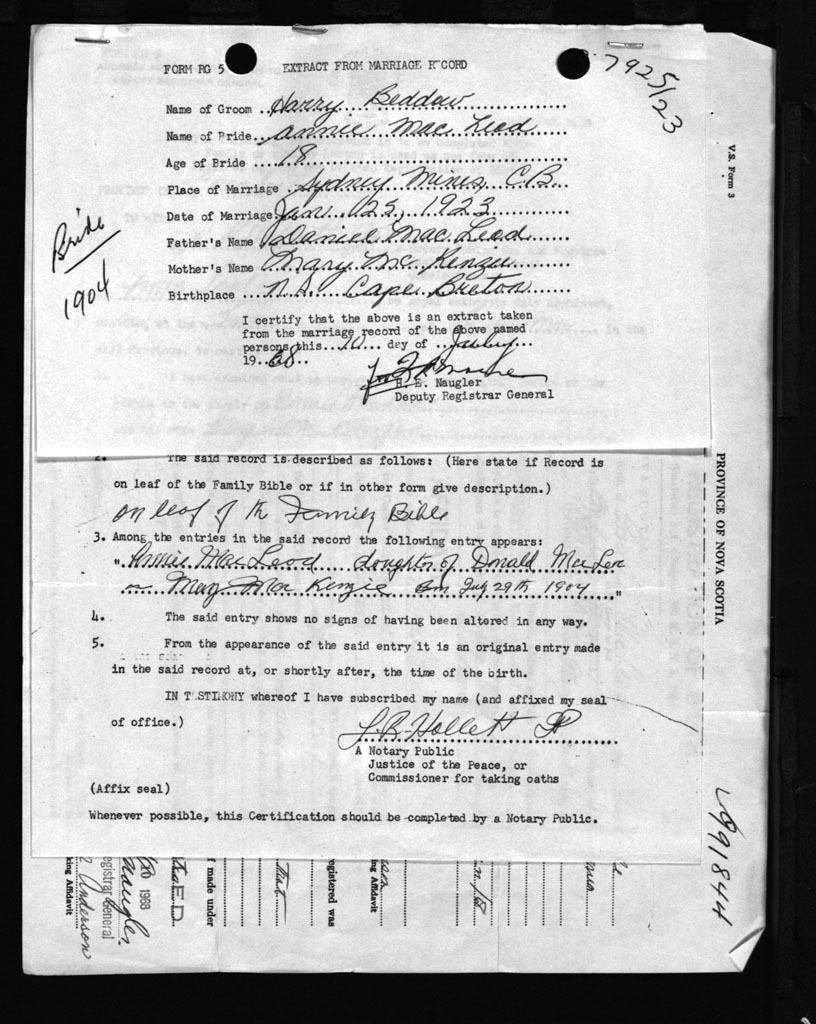 FORM RG 5 EXTRACT FROM MARRIAGE RECORD
7925/23
Name of Groom Harry Beddow
Name of Bride Annie Mac Leod
Age of Bride 18
Place of Marriage Sydney Mines, C.B.
Date of Marriage Jan. 25, 1923
Father's Name Daniel Mac Leod
Mother's Name Mary Mc Kenzie
Birthplace N.S. Cape Breton
Bride
1904
I certify that the above is an extract taken
from the marriage record of the above named
persons this 10 day of July
19 68
H. E. Naugler
Deputy Registrar General
V.S. Form 3
2. The said record is described as follows: (Here state if Record is
on leaf of the Family Bible or if in other form give description.)
on leaf of the Family Bible
3. Among the entries in the said record the following entry appears:
"Annie MacLeod daughter of Donald MacLeod
Mary MacKenzie Born July 29th 1904"
4. The said entry shows no signs of having been altered in any way.
5. From the appearance of the said entry it is an original entry made
in the said record at, or shortly after, the time of the birth.
IN TESTIMONY whereof I have subscribed my name (and affixed my seal
of office.)
L.R. Hollett JP
A Notary Public
Justice of the Peace, or
Commissioner for taking oaths
(Affix seal)
Whenever possible, this Certification should be completed by a Notary Public.
PROVINCE OF NOVA SCOTIA
991844
1968
Naugler
egistrar General
Anderson
king Affidavit
ED.
f made under
that
egistered was
ing Affidavit